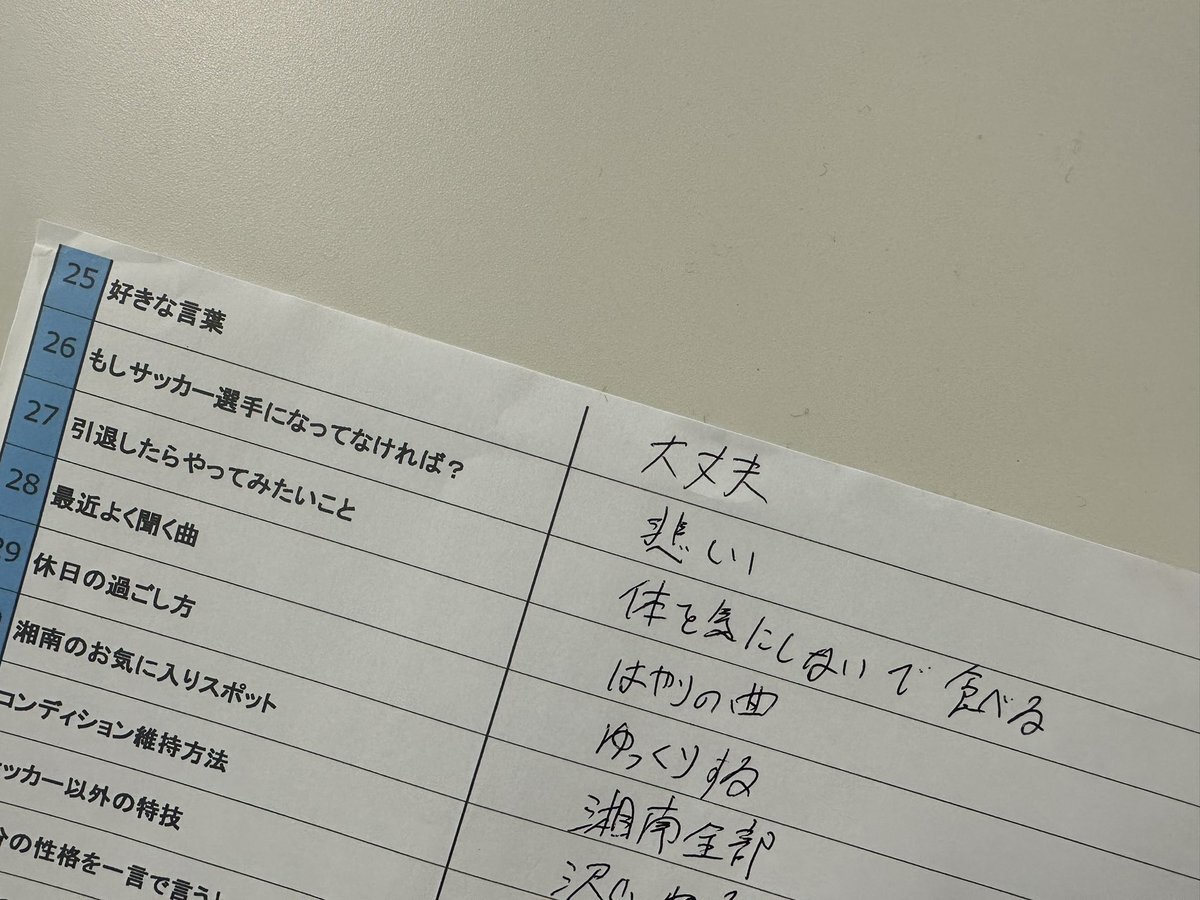 25 好きな言葉 大丈夫
26 もしサッカー選手になってなければ？ 悲しい
27 引退したらやってみたいこと 体を気にしないで食べる
28 最近よく聞く曲 はやりの曲
29 休日の過ごし方 ゆっくりする
湘南のお気に入りスポット 湘南全部
コンディション維持方法 沢山
ッカー以外の特技
の性格を一言で言う